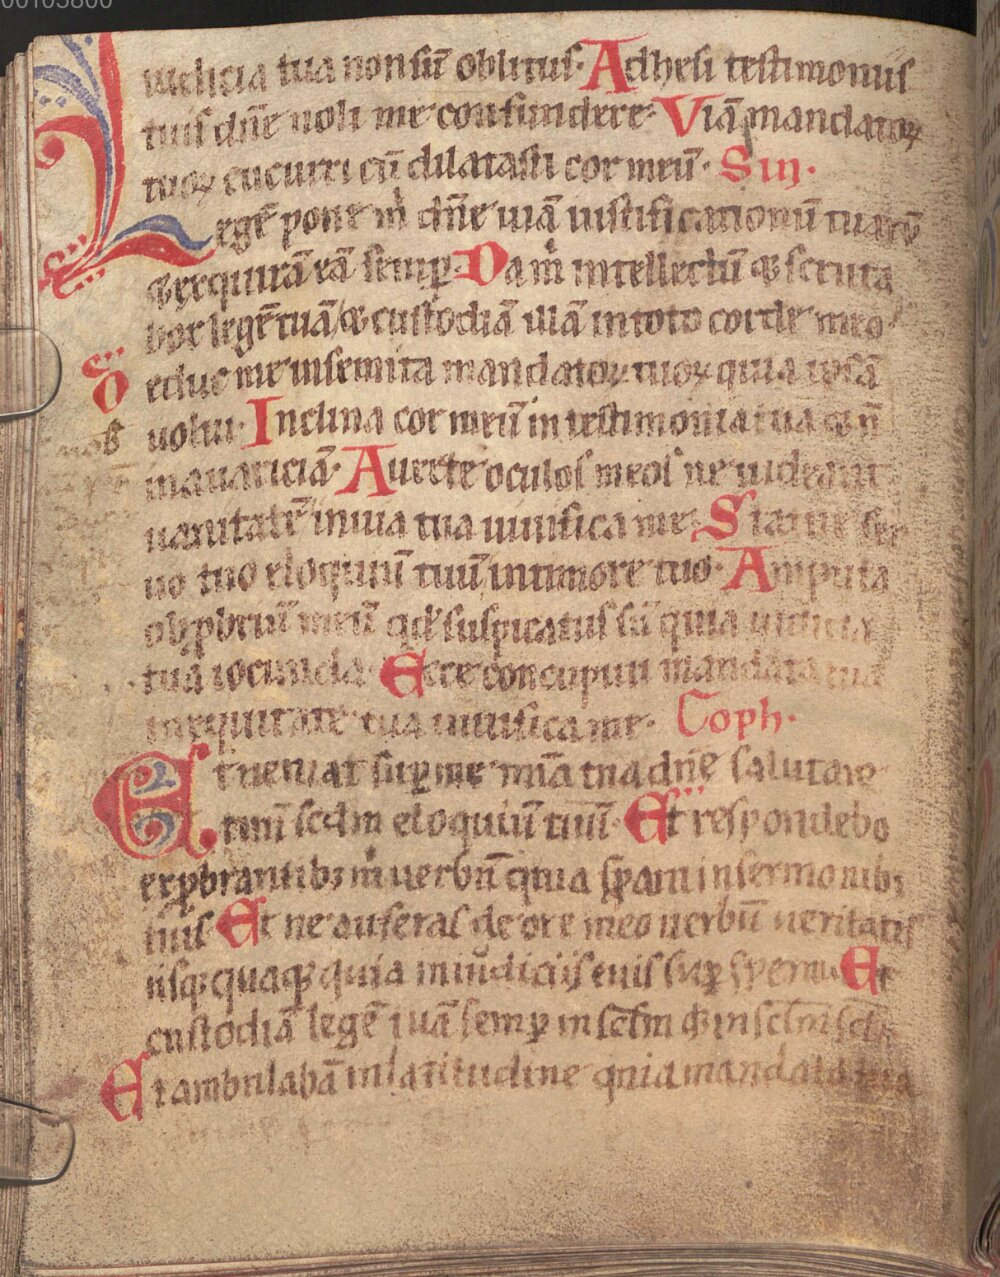 00105800
iudicia tua non sū oblitus· Adhesi testimoniis
tuis dn̄e noli me confundere· Viā mandatoꝝ
tuoꝝ cucurri cū dilatasti cor meū· Sin·
Legē pone m̄ dn̄e uiā iustificationū tuarū
⁊ exquirā eā semꝑ· Da m̄ intellectū ⁊ scruta
bor legē tuā ⁊ custodiā illā in toto corde meo
Deduc me in semita mandatoꝝ tuoꝝ quia ipsā
uolui· Inclina cor meū in testimonia tua ⁊ n̄
in auariciā· Auerte oculos meos ne uideant
uanitatē in uia tua uiuifica me· Statue ser
uo tuo eloquiū tuū in timore tuo· Amputa
obꝓbriū meū qd̄ suspicatus sū quia iudicia
tua iocunda· Ecce concupiui mandata tua
in equitate tua uiuifica me· Coph·
Et ueniat suꝑ me mīa tua dn̄e salutare
tuū scdm eloquiū tuū· Et respondebo
exꝓbrantibꝫ m̄ uerbū quia sꝑaui in sermonibꝫ
tuis Et ne auferas de ore meo uerbū ueritatis
usqꝫ quaqꝫ quia in iudiciis suꝑ speraui Et
custodiā legē tuā semꝑ in sclm̄ ⁊ in sclm̄ scli
Et ambulabā in latitudine quia mandata tua